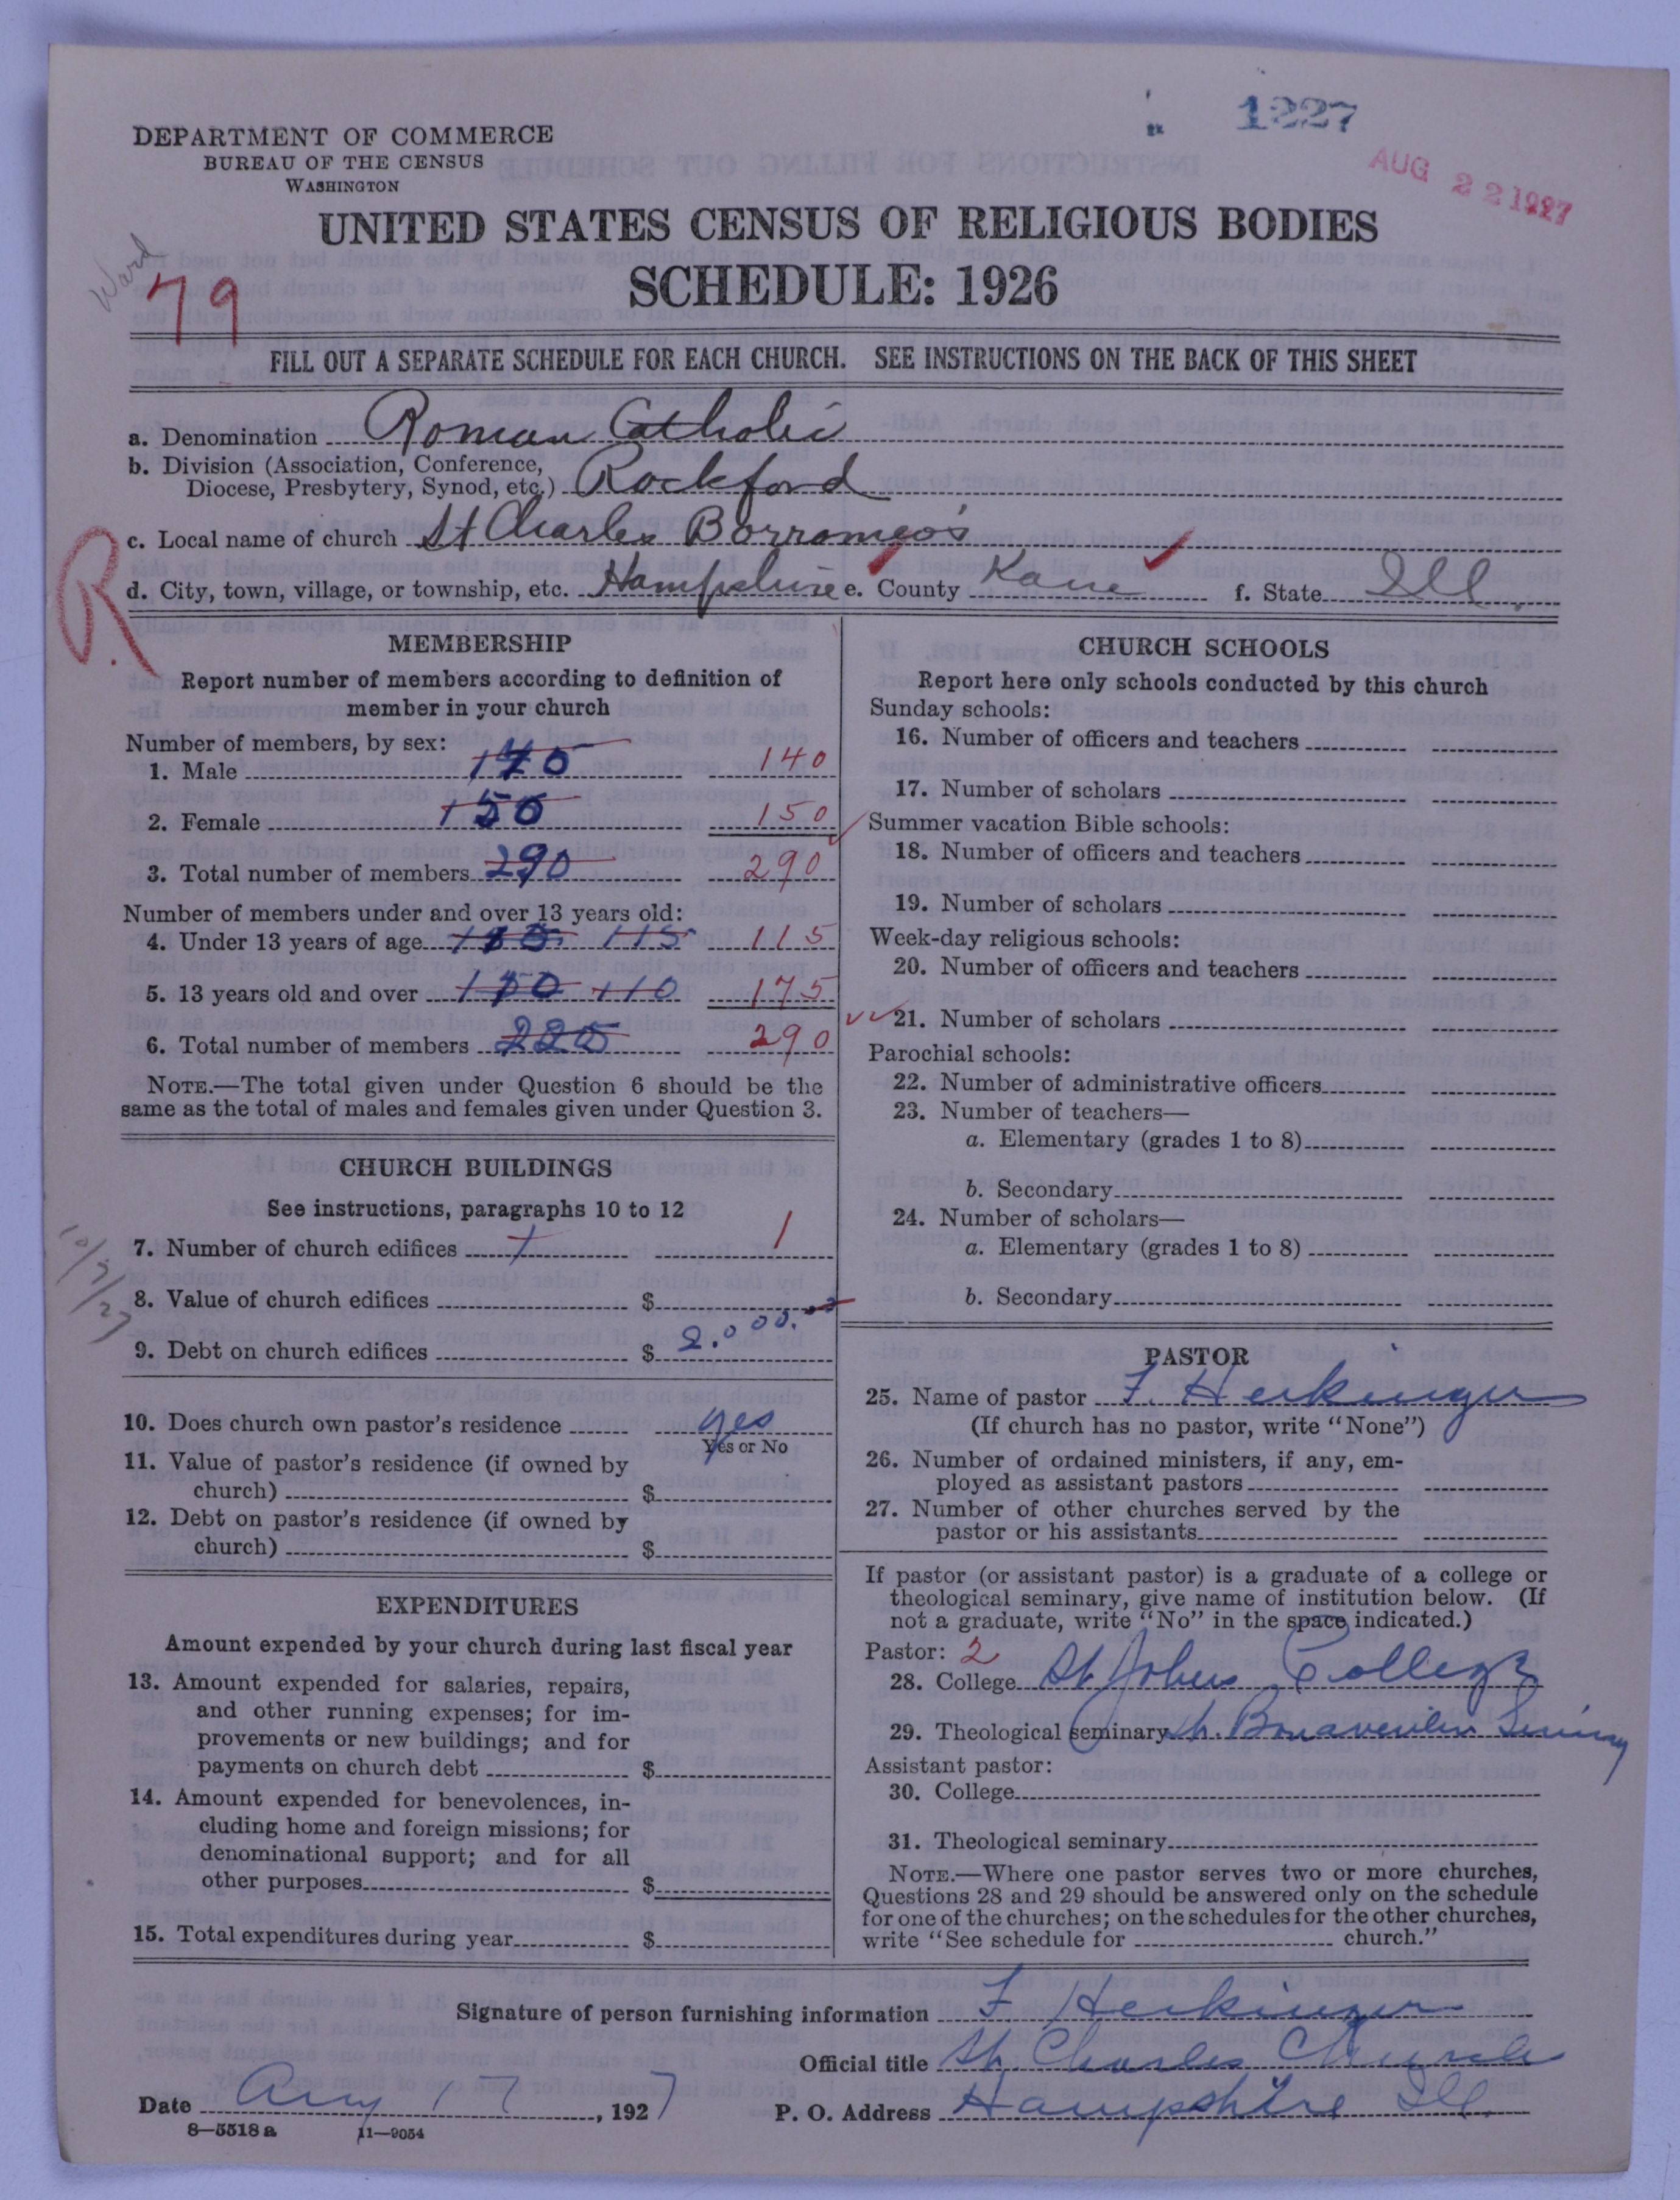 1227
AUG 22 1927
DEPARTMENT OF COMMERCE
BUREAU OF THE CENSUS
WASHINGTON
UNITED STATES CENSUS OF RELIGIOUS BODIES
SCHEDULE: 1926
Ward
79
FILL OUT A SEPARATE SCHEDULE FOR EACH CHURCH. SEE INSTRUCTIONS ON THE BACK OF THIS SHEET
a. Denomination Roman Catholic
b. Division (Association, Conference,
Diocese, Presbytery, Synod, etc.) Rockford
c. Local name of church St Charles Borromeo's
R.
d. City, town, village, or township, etc. Hampshire e. County Kane f. State Ill.
MEMBERSHIP
Report number of members according to definition of
member in your church
Number of members, by sex:
1. Male 140 140
2. Female 150 150
3. Total number of members 290 290
Number of members under and over 13 years old:
4. Under 13 years of age 115 115
5. 13 years old and over 110 175
6. Total number of members 225 290
NOTE.—The total given under Question 6 should be the
same as the total of males and females given under Question 3.
CHURCH BUILDINGS
See instructions, paragraphs 10 to 12
7. Number of church edifices 1 1
8. Value of church edifices $
10/3/27
9. Debt on church edifices $ 2.000.
10. Does church own pastor's residence yes
Yes or No
11. Value of pastor's residence (if owned by
church) $
12. Debt on pastor's residence (if owned by
church) $
EXPENDITURES
Amount expended by your church during last fiscal year
13. Amount expended for salaries, repairs,
and other running expenses; for im-
provements or new buildings; and for
payments on church debt $
14. Amount expended for benevolences, in-
cluding home and foreign missions; for
denominational support; and for all
other purposes $
15. Total expenditures during year $
CHURCH SCHOOLS
Report here only schools conducted by this church
Sunday schools:
16. Number of officers and teachers
17. Number of scholars
Summer vacation Bible schools:
18. Number of officers and teachers
19. Number of scholars
Week-day religious schools:
20. Number of officers and teachers
21. Number of scholars
Parochial schools:
22. Number of administrative officers
23. Number of teachers—
a. Elementary (grades 1 to 8)
b. Secondary
24. Number of scholars—
a. Elementary (grades 1 to 8)
b. Secondary
PASTOR
25. Name of pastor F. Herkinger
(If church has no pastor, write "None")
26. Number of ordained ministers, if any, em-
ployed as assistant pastors
27. Number of other churches served by the
pastor or his assistants
If pastor (or assistant pastor) is a graduate of a college or
theological seminary, give name of institution below. (If
not a graduate, write "No" in the space indicated.)
Pastor: 2
28. College St Johns College
29. Theological seminary St Bonaventure
Assistant pastor:
30. College
31. Theological seminary
NOTE.—Where one pastor serves two or more churches,
Questions 28 and 29 should be answered only on the schedule
for one of the churches; on the schedules for the other churches,
write "See schedule for church."
Signature of person furnishing information F. Herkinger
Official title St. Charles Church
Date Aug 17, 1927 P. O. Address Hampshire Ill.
8—5518 a 11—9054